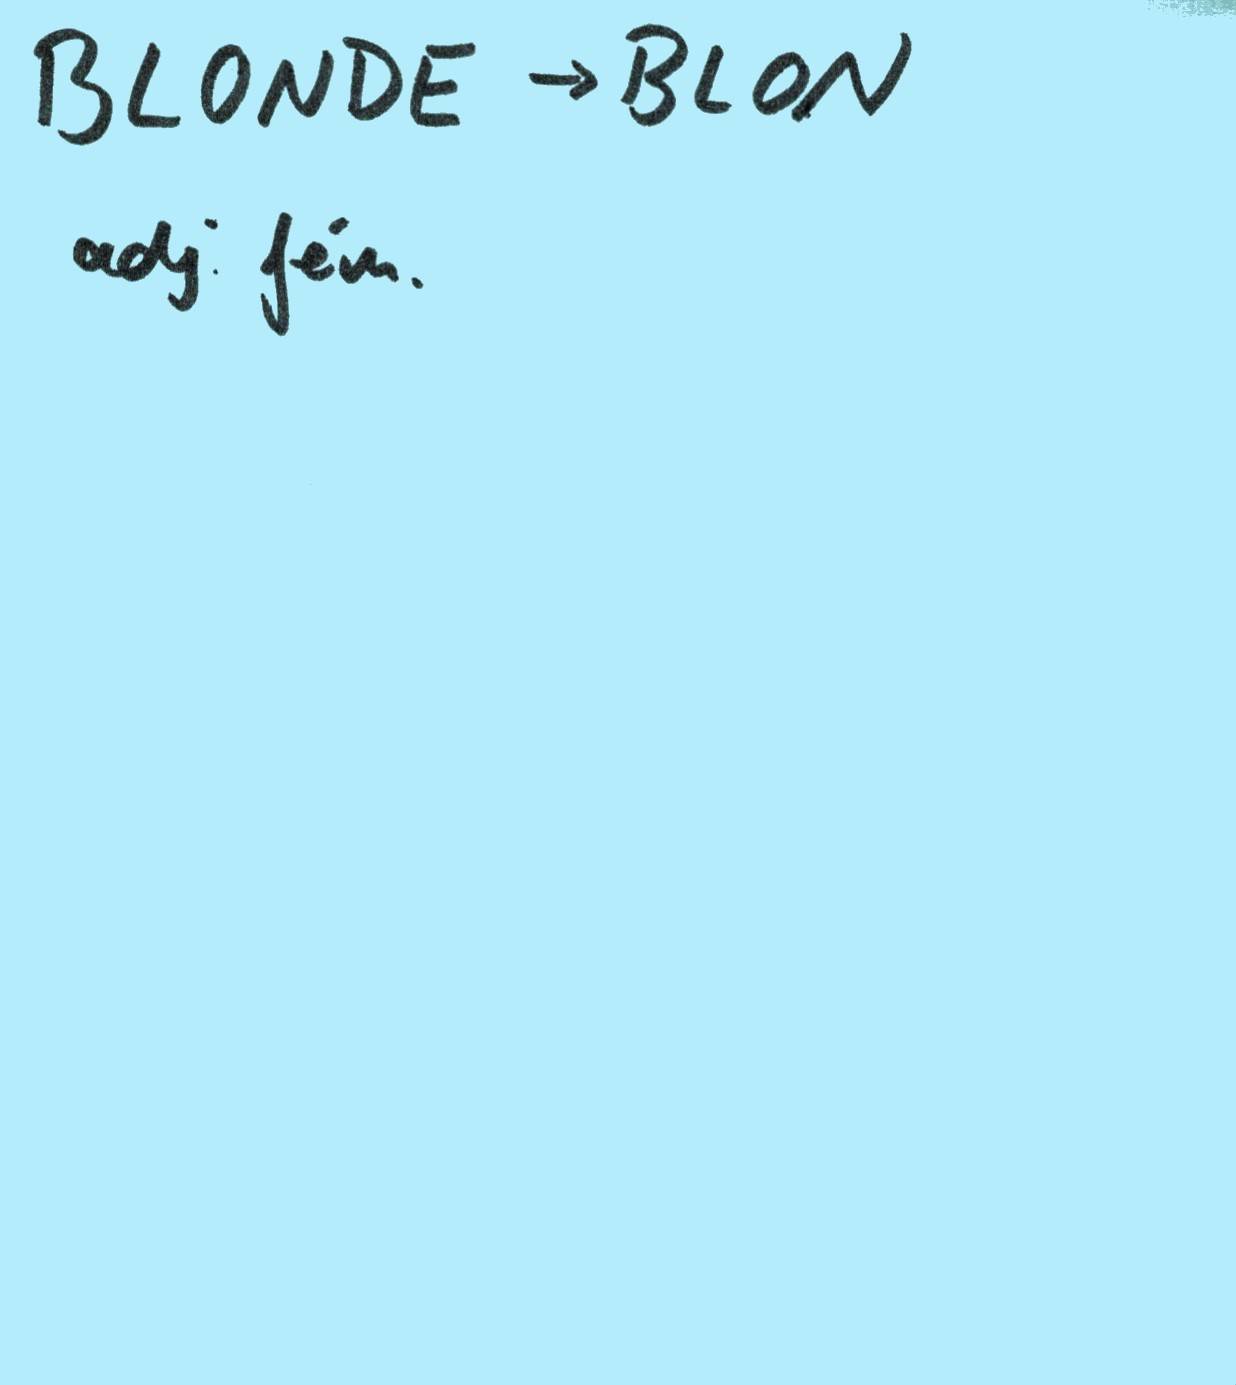 BLONDE → BLON
adj. fém.